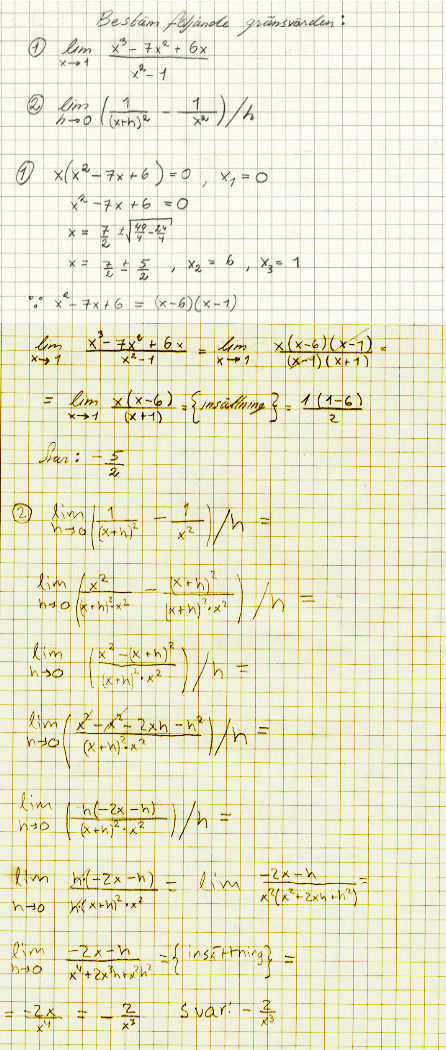 Bestäm följande gränsvärden:
① lim x→1 (x³ - 7x² + 6x)/(x² - 1)
② lim h→0 (1/(x+h)² - 1/x²)/h
① x(x² - 7x + 6) = 0 , x₁ = 0
x² - 7x + 6 = 0
x = 7/2 ± √(49/4 - 24/4)
x = 7/2 ± 5/2 , x₂ = 6 , x₃ = 1
∵ x² - 7x + 6 = (x-6)(x-1)
lim x→1 (x³ - 7x² + 6x)/(x² - 1) = lim x→1 (x(x-6)(x-1))/((x-1)(x+1)) =
= lim x→1 (x(x-6))/(x+1) = {insättning} = (1(1-6))/2
Svar: - 5/2
② lim h→0 (1/(x+h)² - 1/x²)/h =
lim h→0 (x²/((x+h)²·x²) - (x+h)²/((x+h)²·x²))/h =
lim h→0 ((x² - (x+h)²)/((x+h)²·x²))/h =
lim h→0 ((x² - x² - 2xh - h²)/((x+h)²·x²))/h =
lim h→0 (h(-2x-h)/((x+h)²·x²))/h =
lim h→0 (h·(-2x-h))/(h·(x+h)²·x²) = lim (-2x-h)/(x²(x²+2xh+h²)) =
lim h→0 (-2x-h)/(x⁴+2x³h+x²h²) = {insättning} =
= -2x/x⁴ = - 2/x³ Svar: - 2/x³